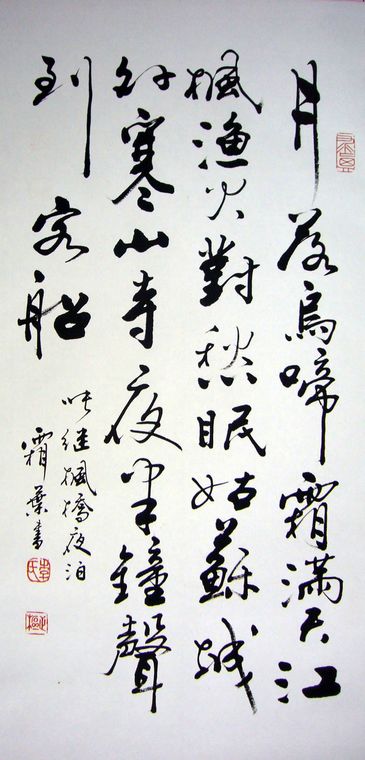 月落烏啼霜滿天江
楓漁火對愁眠姑蘇城
外寒山寺夜半鐘聲
到客船
张继楓橋夜泊
霜葉書